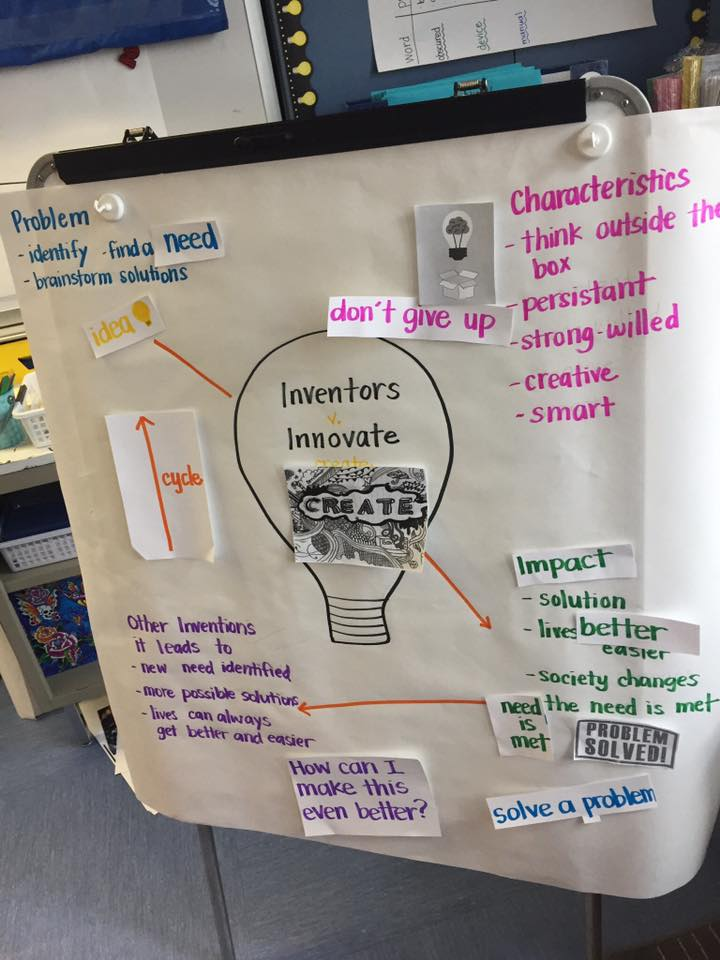 word
obscured
device
manual
Problem
- identify - find a need
- brainstorm solutions
idea
Characteristics
- think outside the
box
- persistant
- strong-willed
- creative
- smart
don't give up
Inventors
v.
Innovate
create
CREATE
cycle
Impact
- solution
- lives better
easier
- society changes
the need is met
need
is
met
PROBLEM
SOLVED!
solve a problem
Other Inventions
it leads to
- new need identified
- more possible solutions
- lives can always
get better and easier
How can I
make this
even better?